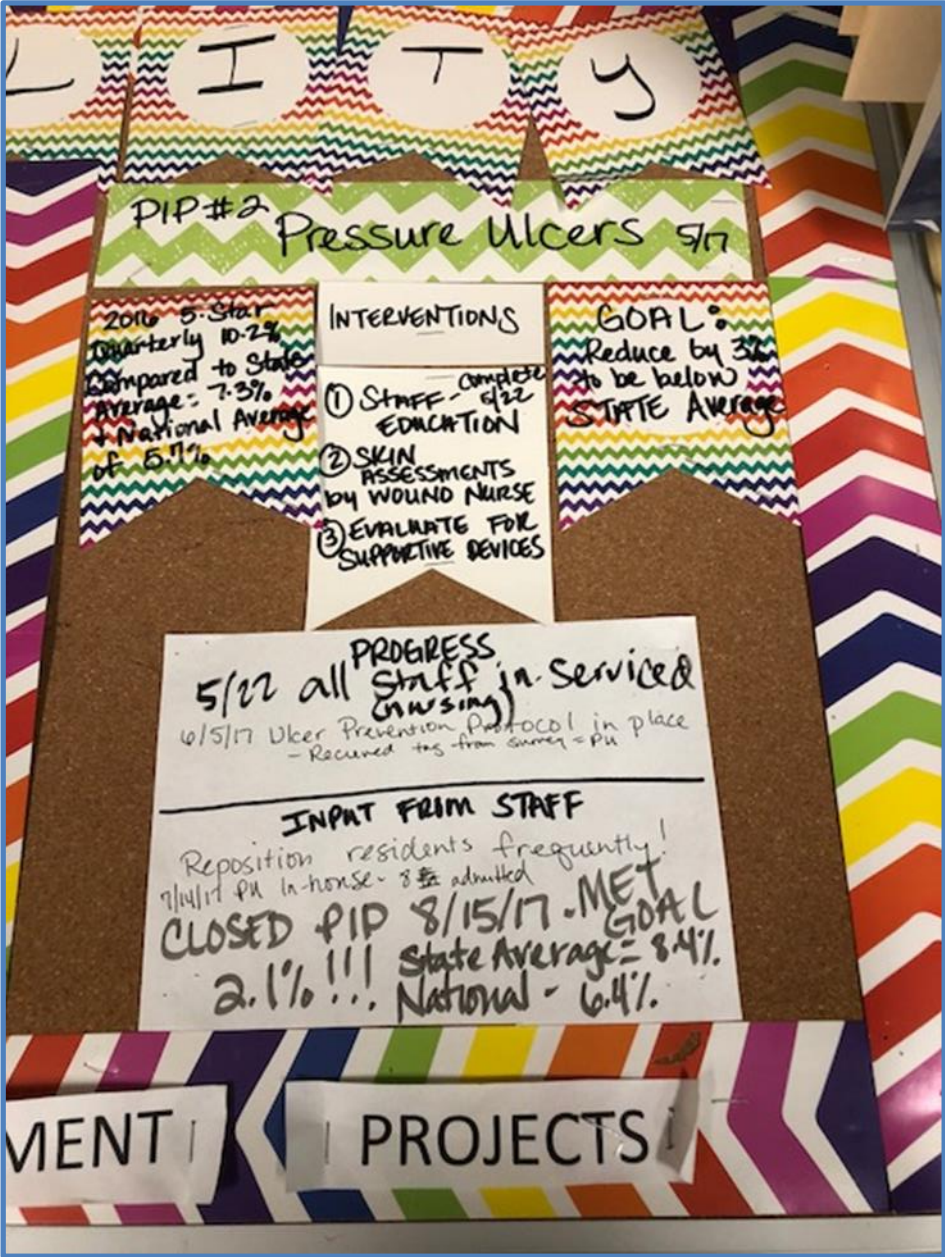 L I T y
PIP #2
Pressure Ulcers 5/17
2016 5-Star
Quarterly 10.2%
Compared to State
Average = 7.3%
+ National Average
of 5.7%
INTERVENTIONS
① STAFF - complete 5/22
EDUCATION
② SKIN
ASSESSMENTS
by WOUND NURSE
③ EVALUATE FOR
SUPPORTIVE DEVICES
GOAL:
Reduce by 3%
to be below
STATE Average
PROGRESS
5/22 all Staff in-serviced
(nursing)
6/5/17 Ulcer Prevention Protocol in place
- Recieved tag from survey = PU
INPUT FROM STAFF
Reposition residents frequently!
7/14/17 PU In-house - 8 admitted
CLOSED PIP 8/15/17. MET
GOAL
2.1%!!! State Average = 8.4%.
National - 6.4%.
MENT
PROJECTS